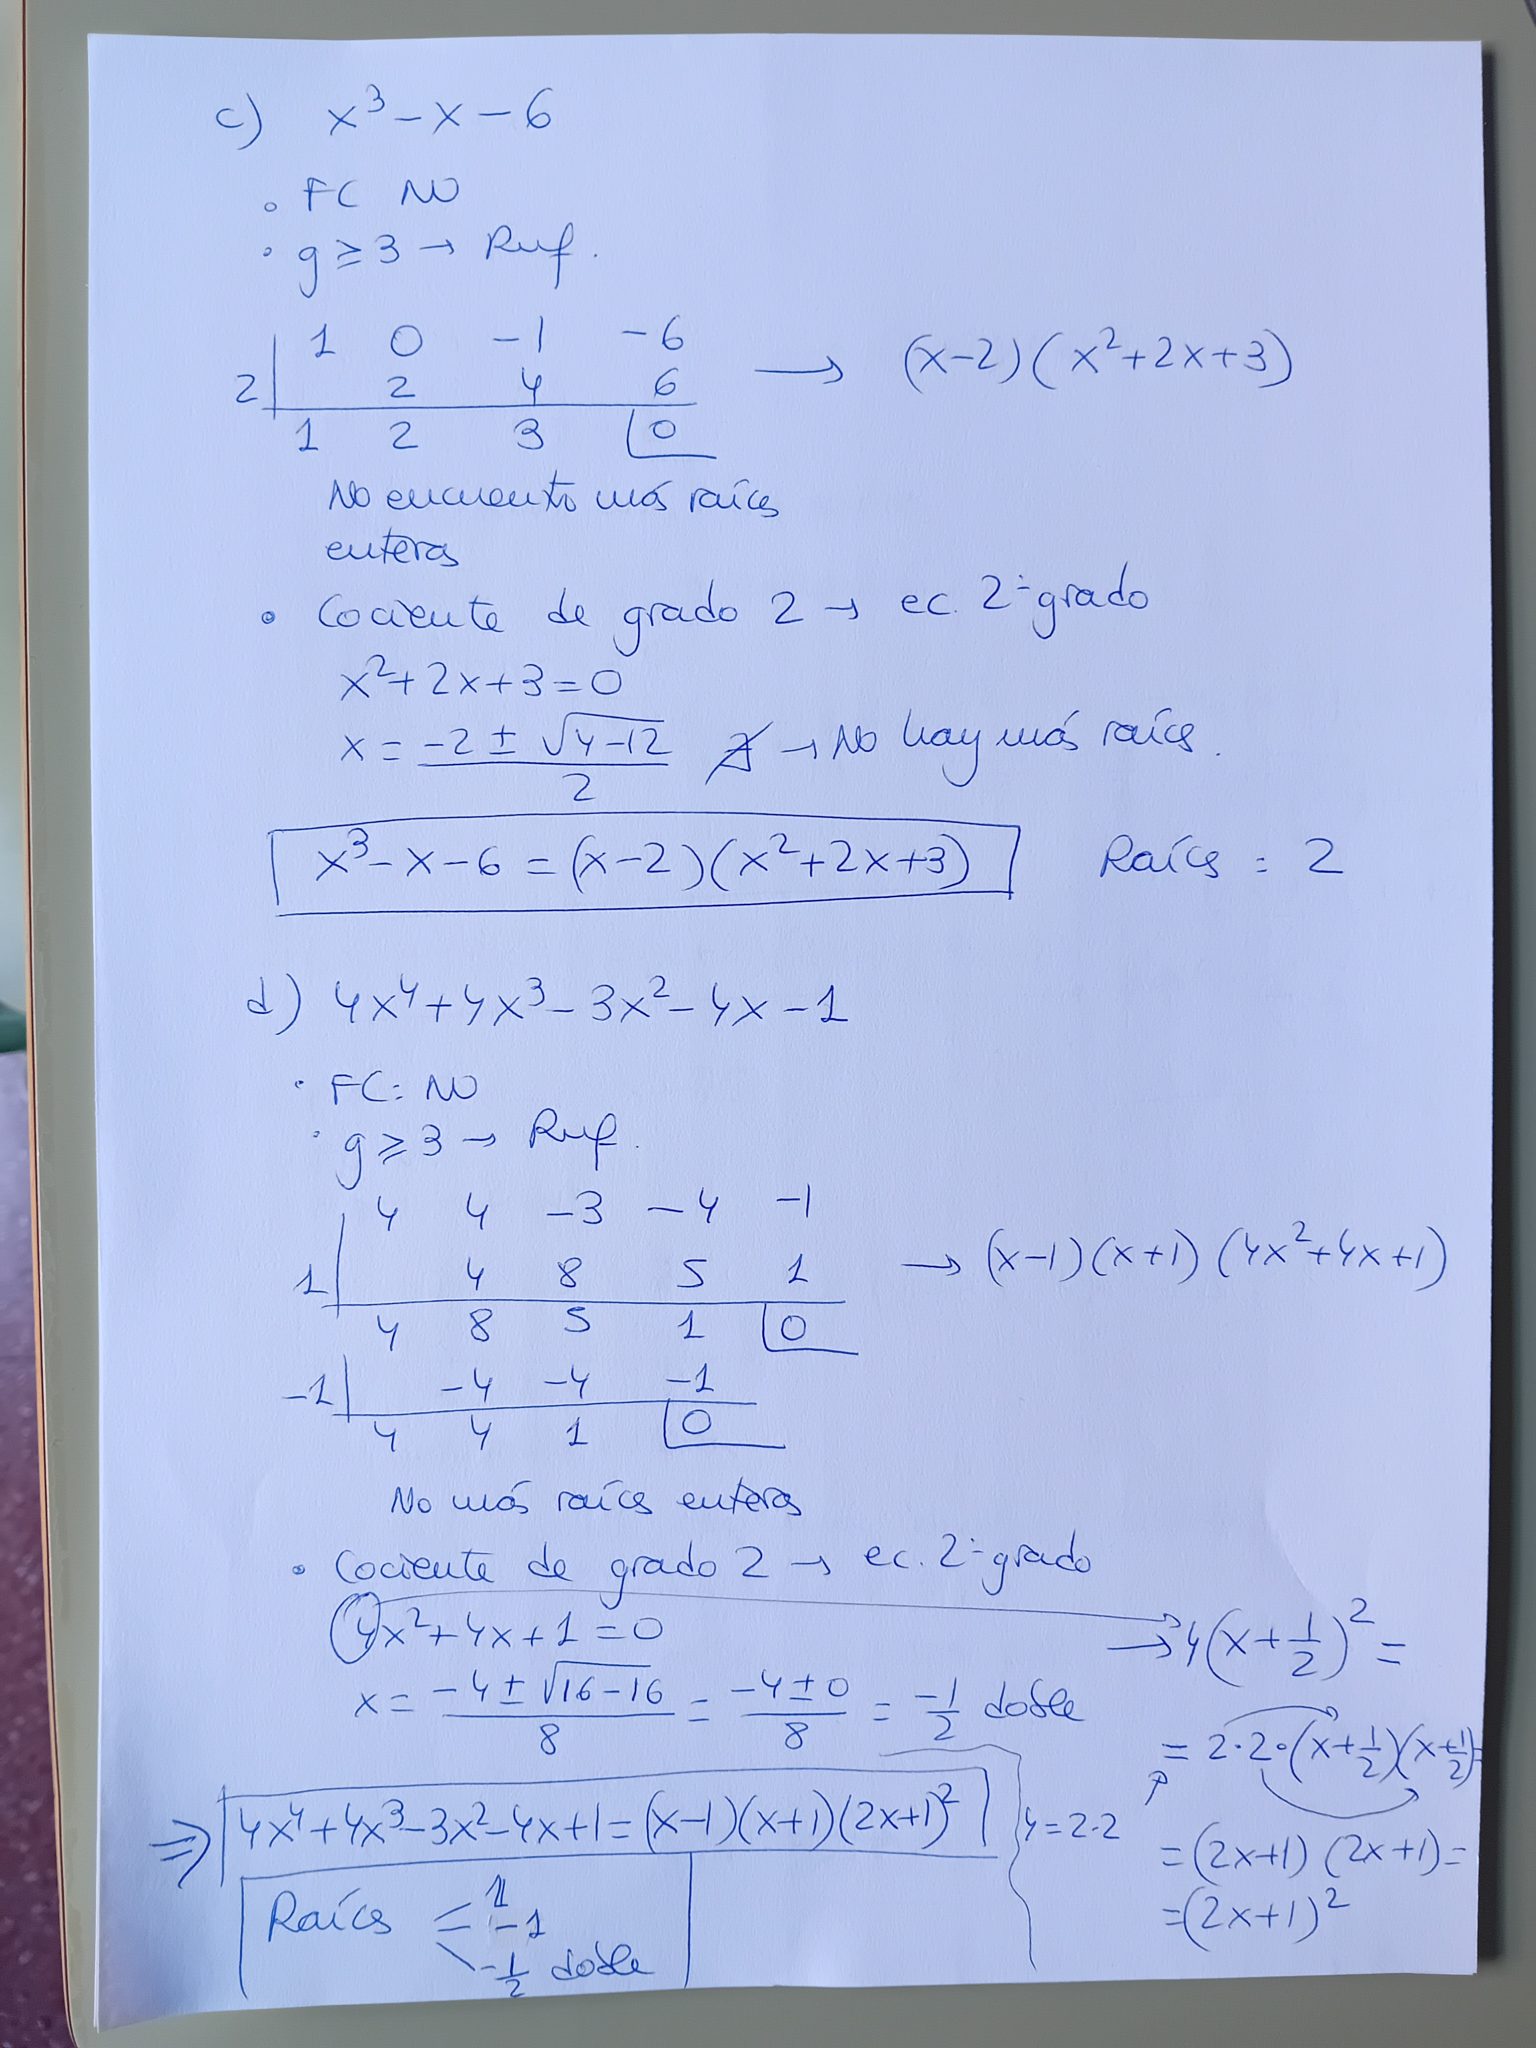 c) x³-x-6
• FC NO
• g≥3 → Ruf.
1 0 -1 -6
2 2 4 6 → (x-2)(x²+2x+3)
1 2 3 0
No encuentro más raíces
enteras
• Cociente de grado 2 → ec. 2º grado
x²+2x+3=0
x = (-2±√(4-12))/2 ∄ → No hay más raíces.
x³-x-6 = (x-2)(x²+2x+3) Raíces = 2
d) 4x⁴+4x³-3x²-4x-1
• FC: NO
• g≥3 → Ruf.
4 4 -3 -4 -1
1 4 8 5 1 → (x-1)(x+1)(4x²+4x+1)
4 8 5 1 0
-1 -4 -4 -1
4 4 1 0
No más raíces enteras
• Cociente de grado 2 → ec. 2º grado
4x²+4x+1=0 → 4(x+1/2)² =
x = (-4±√(16-16))/8 = (-4±0)/8 = -1/2 doble
= 2·2·(x+1/2)(x+1/2)=
⇒ 4x⁴+4x³-3x²-4x+1=(x-1)(x+1)(2x+1)² 4=2·2
= (2x+1)(2x+1)=
=(2x+1)²
Raíces 1
-1
-1/2 doble